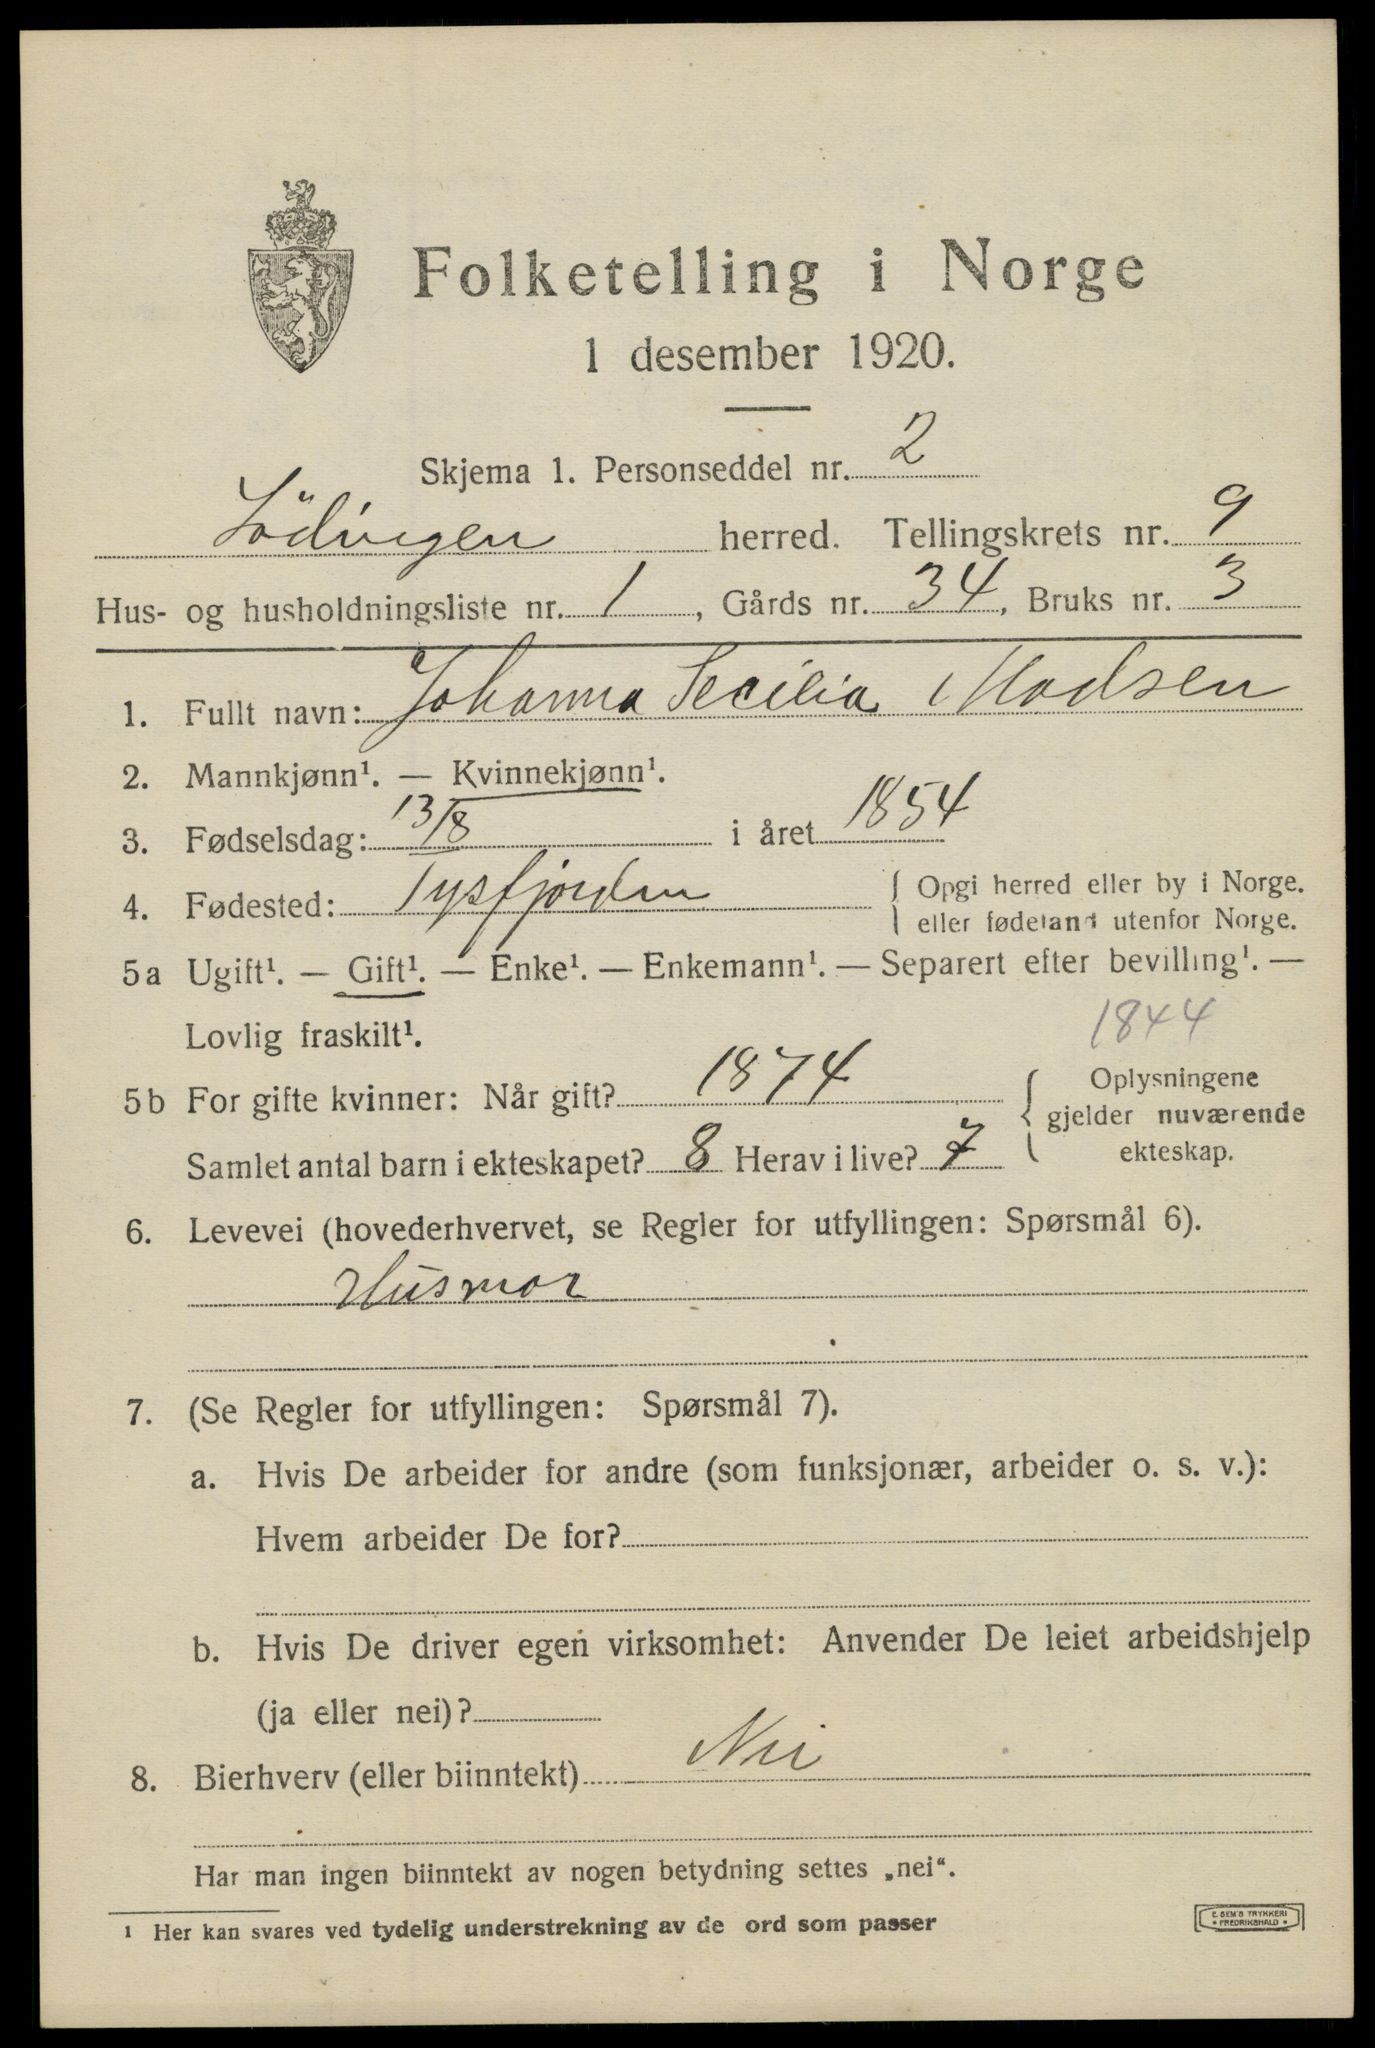 Folketelling i Norge
1 desember 1920.
Skjema 1. Personseddel nr. 2
Lödingen herred. Tellingskrets nr. 9
Hus- og husholdningsliste nr. 1, Gårds nr. 34, Bruks nr. 3
1. Fullt navn: Johanna Secilia Madsen
2. Mannkjønn¹. — Kvinnekjønn¹.
3. Fødselsdag: 13/8 i året 1854
4. Fødested: Tysfjorden { Opgi herred eller by i Norge.
eller fødeland utenfor Norge.
5a Ugift¹. — Gift¹. — Enke¹. — Enkemann¹. — Separert efter bevilling¹. —
Lovlig fraskilt¹. 1844
5b For gifte kvinner: Når gift? 1874 { Oplysningene
gjelder nuværende
Samlet antal barn i ekteskapet? 8 Herav i live? 7 ekteskap.
6. Levevei (hovederhvervet, se Regler for utfyllingen: Spørsmål 6).
Husmor
7. (Se Regler for utfyllingen: Spørsmål 7).
a. Hvis De arbeider for andre (som funksjonær, arbeider o. s. v.):
Hvem arbeider De for?
b. Hvis De driver egen virksomhet: Anvender De leiet arbeidshjelp
(ja eller nei)?
8. Bierhverv (eller biinntekt) Nei
Har man ingen biinntekt av nogen betydning settes „nei“.
¹ Her kan svares ved tydelig understrekning av de ord som passer
E. SEM'S TRYKKERI
FREDRIKSHALD